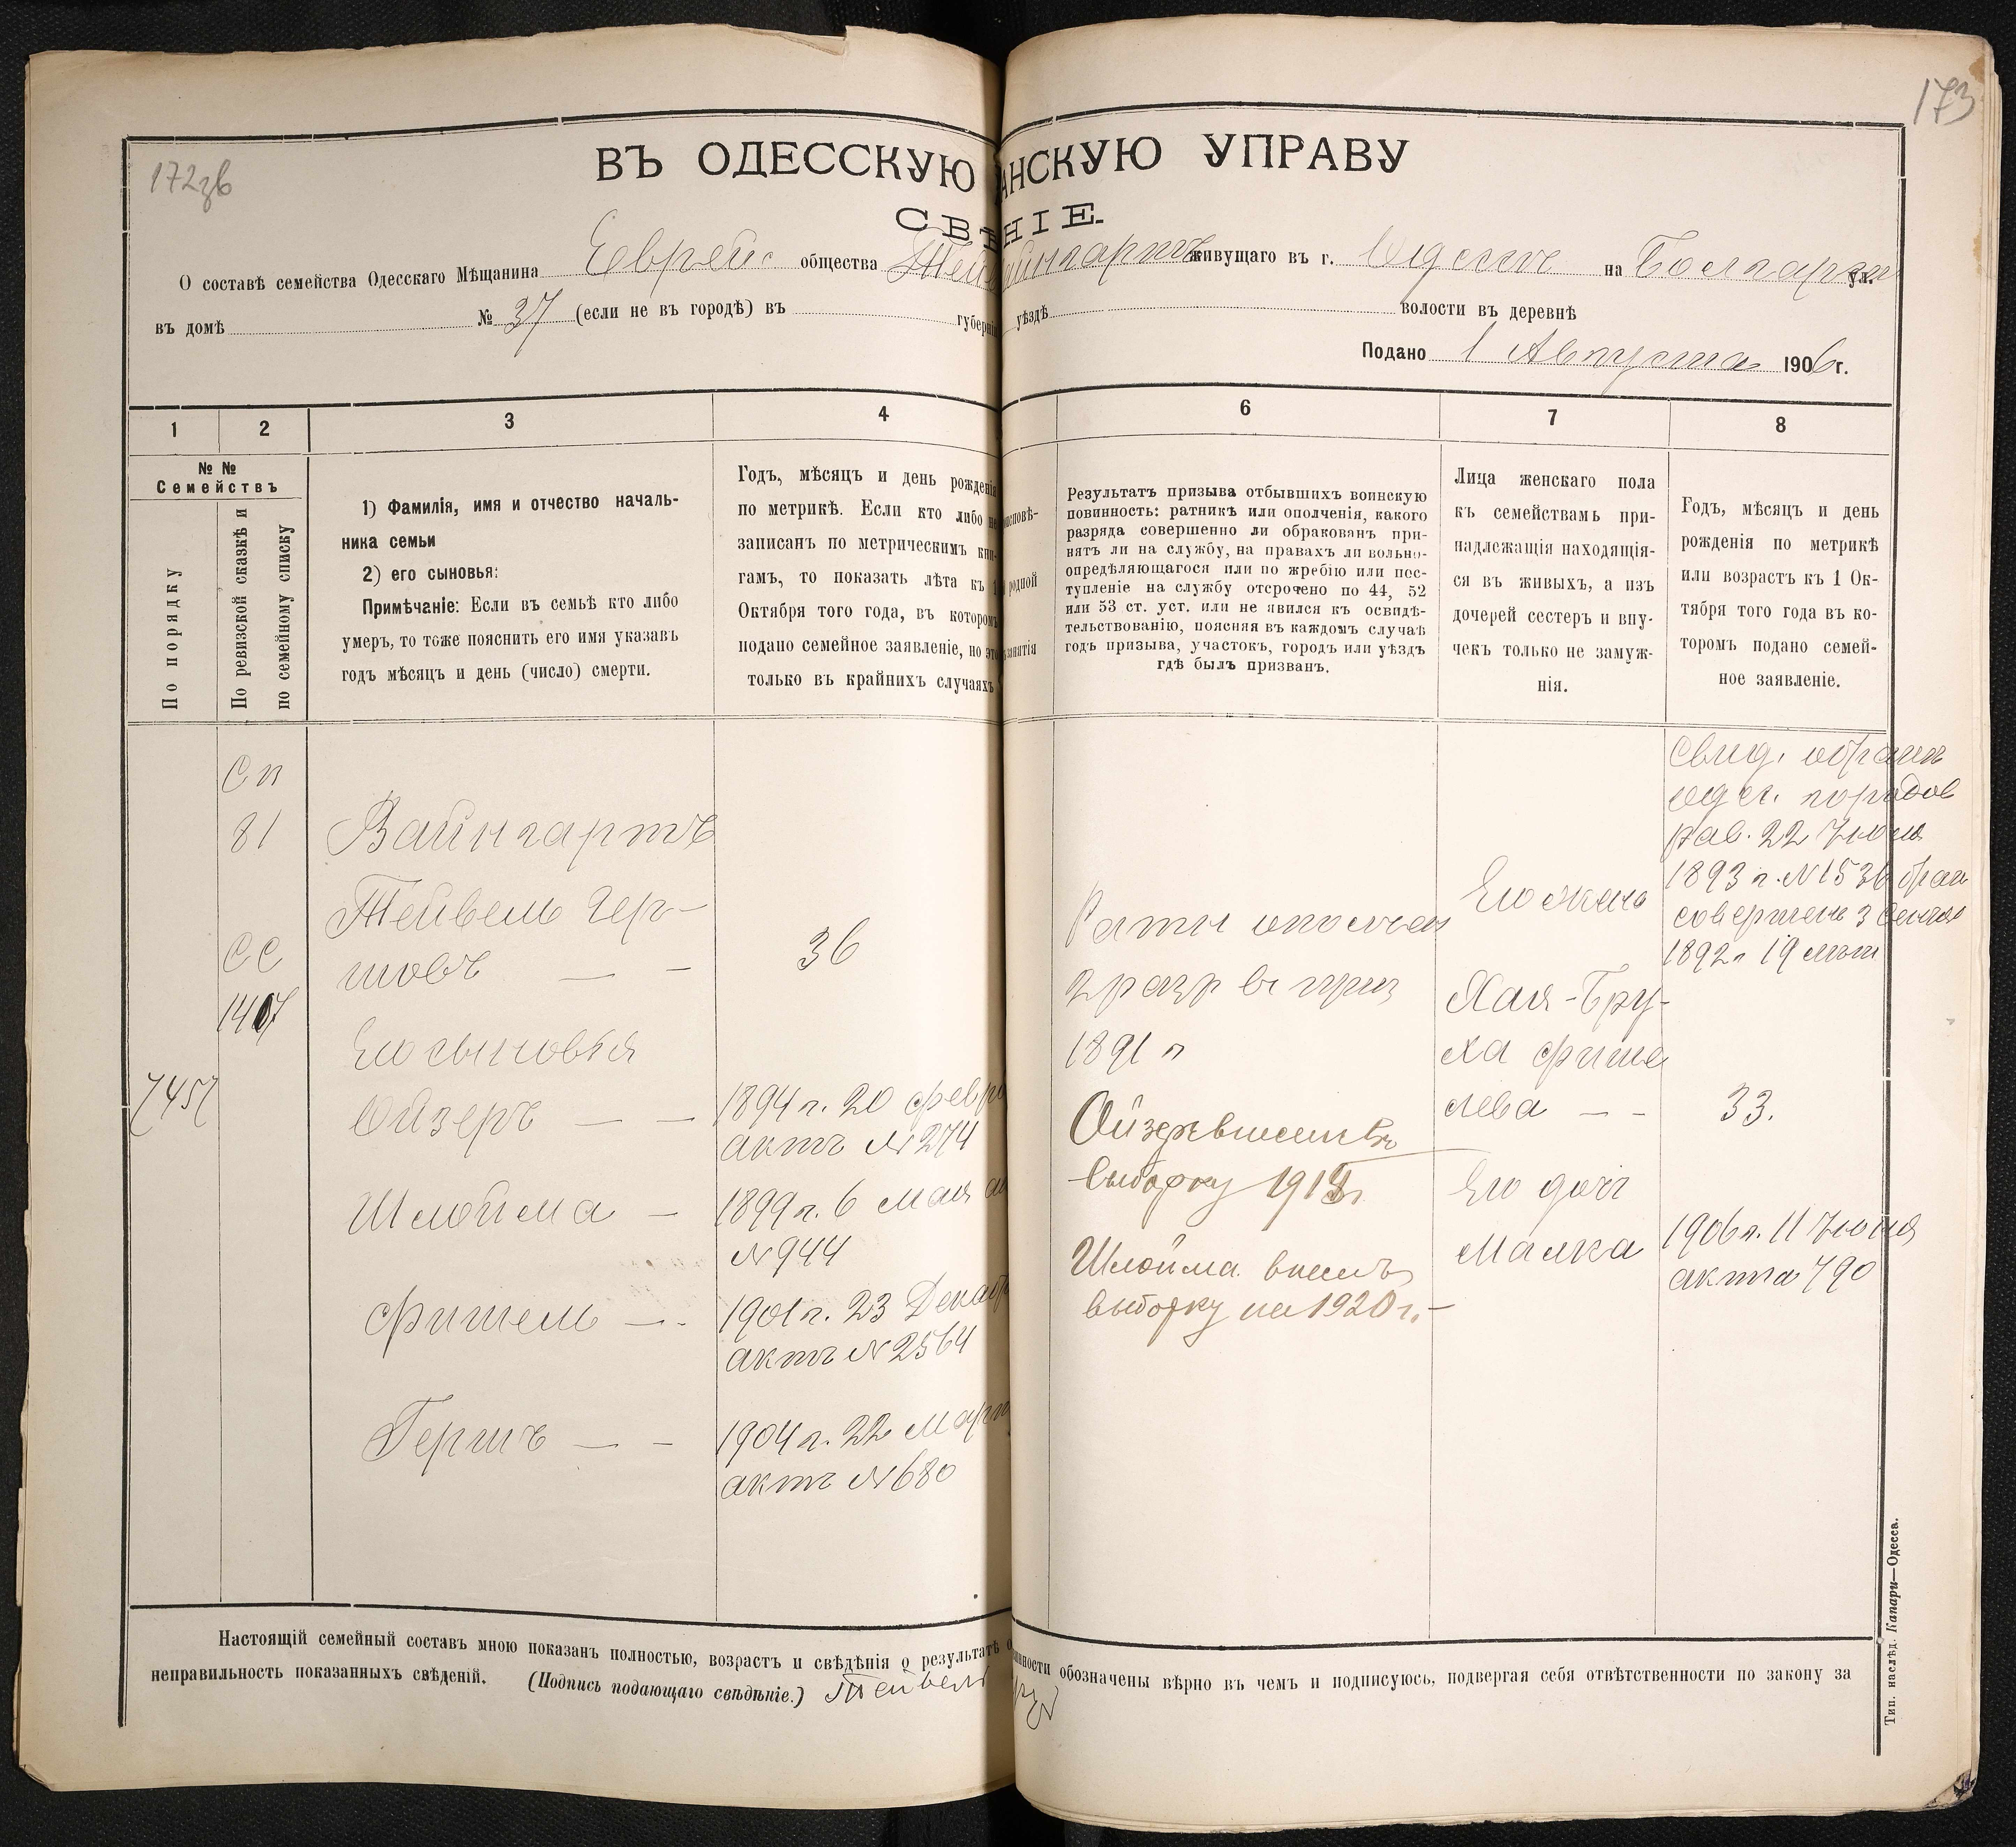 173
172зв
ВЪ ОДЕССКУЮ АНСКУЮ УПРАВУ
СВѢ НІЕ.
О составѣ семейства Одесскаго Мѣщанина Еврейс общества Тейв Вайнгартъ живущаго въ г. Одессѣ на Болгарск ул.
въ домѣ № 37 (если не въ городѣ) въ губерніи уѣздѣ волости въ деревнѣ
Подано 1 Августа 1906 г.
1
2
3
4
6
7
8
№ №
Семействъ
По порядку
По ревизской сказкѣ и
по семейному списку
1) Фамилія, имя и отчество началь-
ника семьи
2) его сыновья:
Примѣчаніе: Если въ семьѣ кто либо
умеръ, то тоже пояснить его имя указавъ
годъ мѣсяцъ и день (число) смерти.
Годъ, мѣсяцъ и день рожденія
по метрикѣ. Если кто либо не
записанъ по метрическимъ кни-
гамъ, то показать лѣта къ 1
Октября того года, въ которомъ
подано семейное заявленіе, но это
только въ крайнихъ случаяхъ
исповѣ-
родной
занятія
Результатъ призыва отбывшихъ воинскую
повинность: ратникъ или ополченія, какого
разряда совершенно ли обракованъ при-
нятъ ли на службу, на правахъ ли вольно-
опредѣляющагося или по жребію или пос-
тупленіе на службу отсрочено по 44, 52
или 53 ст. уст. или не явился къ освидѣ-
тельствованію, поясняя въ каждомъ случаѣ
годъ призыва, участокъ, городъ или уѣздъ
гдѣ былъ призванъ.
Лица женскаго пола
къ семействамъ при-
надлежащія находящія-
ся въ живыхъ, а изъ
дочерей сестеръ и вну-
чекъ только не замуж-
нія.
Годъ, мѣсяцъ и день
рожденія по метрикѣ
или возрастъ къ 1 Ок-
тября того года въ ко-
торомъ подано семей-
ное заявленіе.
7457
Сп
81
СС
1407
Вайнгартъ
Тейвель Гер-
шовъ — —
Его сыновья
Ойзеръ — —
Шлойма —
Фишель — -
Гершъ — —
36
1894 г. 20 Февра
актъ № 274
1899 г. 6 Мая ак
№ 944
1901 г. 23 Декабр
актъ № 2564
1904 г. 22 Март
актъ № 680
Ратн ополчен
2 разр въ приз
1891 г
Ойзеръ внесенъ въ
выборку 1915 г.
Шлойма внесенъ
выборку на 1920 г. —
Его жена
Хая-Бру-
ха Фише
лева — -
Его доч
Малка
свид. о брак
Одес. город
рав. 22 Июня
1893 г. № 1536 брак
совершенъ 3
1892 г 19 лѣт
33.
1906 г. 11 Июня
акта 790
Настоящій семейный составъ мною показанъ полностью, возрастъ и свѣдѣнія о результатѣ о инности обозначены вѣрно въ чемъ и подписуюсь, подвергая себя отвѣтственности по закону за
неправильность показанныхъ свѣдѣній. (Подпись подающаго свѣдѣніе.) Тейвель
Тип. наслѣд. Капари—Одесса.